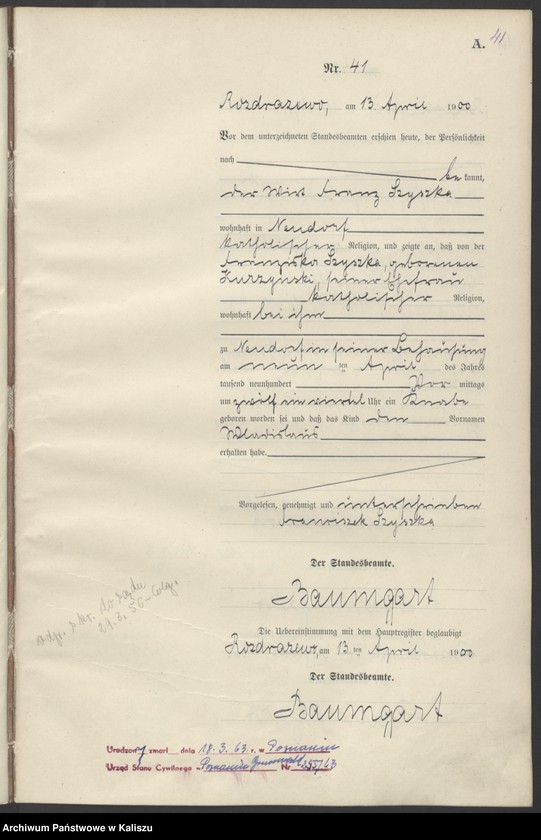 41
A.
Nr. 41
Rozdrazewo, am 13. April 1900
Vor dem unterzeichneten Standesbeamten erschien heute, der Persönlichkeit
nach be kannt,
der Wirt Franz Szyszka
wohnhaft in Neudorf
katholischer Religion, und zeigte an, daß von der
Franziska Szyszka, geborenen
Kurzynski, seiner Ehefrau
katholischer Religion,
wohnhaft bei ihm
zu Neudorf in seiner Behausung
am neun ten April des Jahres
tausend neunhundert Vor mittags
um zwölf ein viertel Uhr ein Knabe
geboren worden sei und daß das Kind den Vornamen
Wladislaus
erhalten habe.
Vorgelesen, genehmigt und unterschrieben
Franciszek Szyszka
Der Standesbeamte.
Baumgart
Die Uebereinstimmung mit dem Hauptregister beglaubigt
Rozdrazewo, am 13 ten April 1900
Der Standesbeamte.
Baumgart
odp. 29.3.56
Urodzony zmarł dnia 18.3.63 r. w Poznaniu
Urząd Stanu Cywilnego Poznaniu Nr
Archiwum Państwowe w Kaliszu